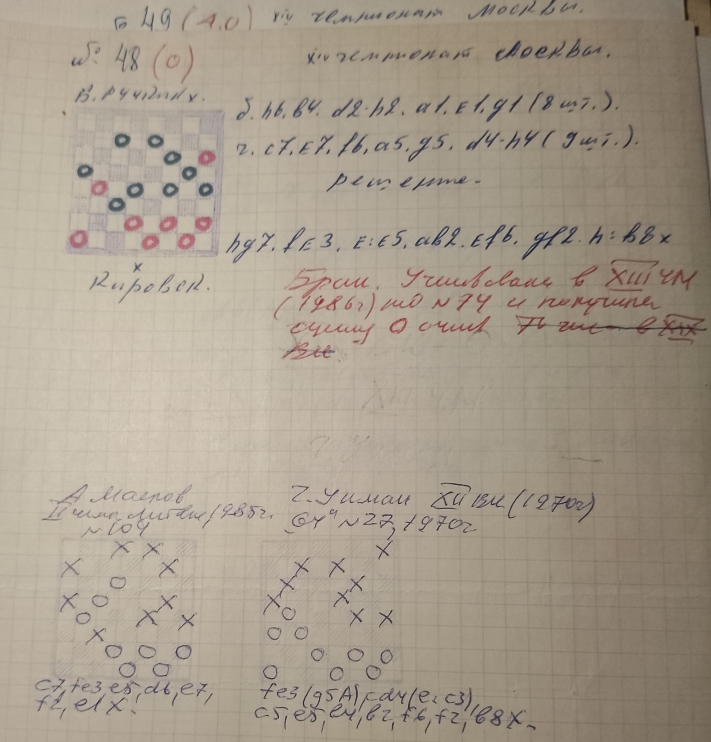 Б 49 (1.0) XIV чемпионат Москвы.
№ 48 (0) XIV чемпионат Москвы.
В. Лучших.
б. h6, b4. d2-h2, a1, e1, g1 (8 шт.).
ч. c7, e7, f6, a5, g5, d4-h4 (9 шт.).
Решение.
hg7. fe3, e:e5, ab2, ef6, gf2. h:b8x
Кировск.
Брак. Участвовала в XIII ЧМ
(1986г) под №74 и получила
оценку 0 очков
А. Маеров
II чемп. Литвы 1985г.
№104
c7, fe3, e5, d6, e7,
f2, e1X.
Г. Уиман XII ВК (1970г)
"64" №27, 1970г
fe3 (g5A), cd4 (e:c3),
c5, e5, e4, b2, f6, f2, b8X.